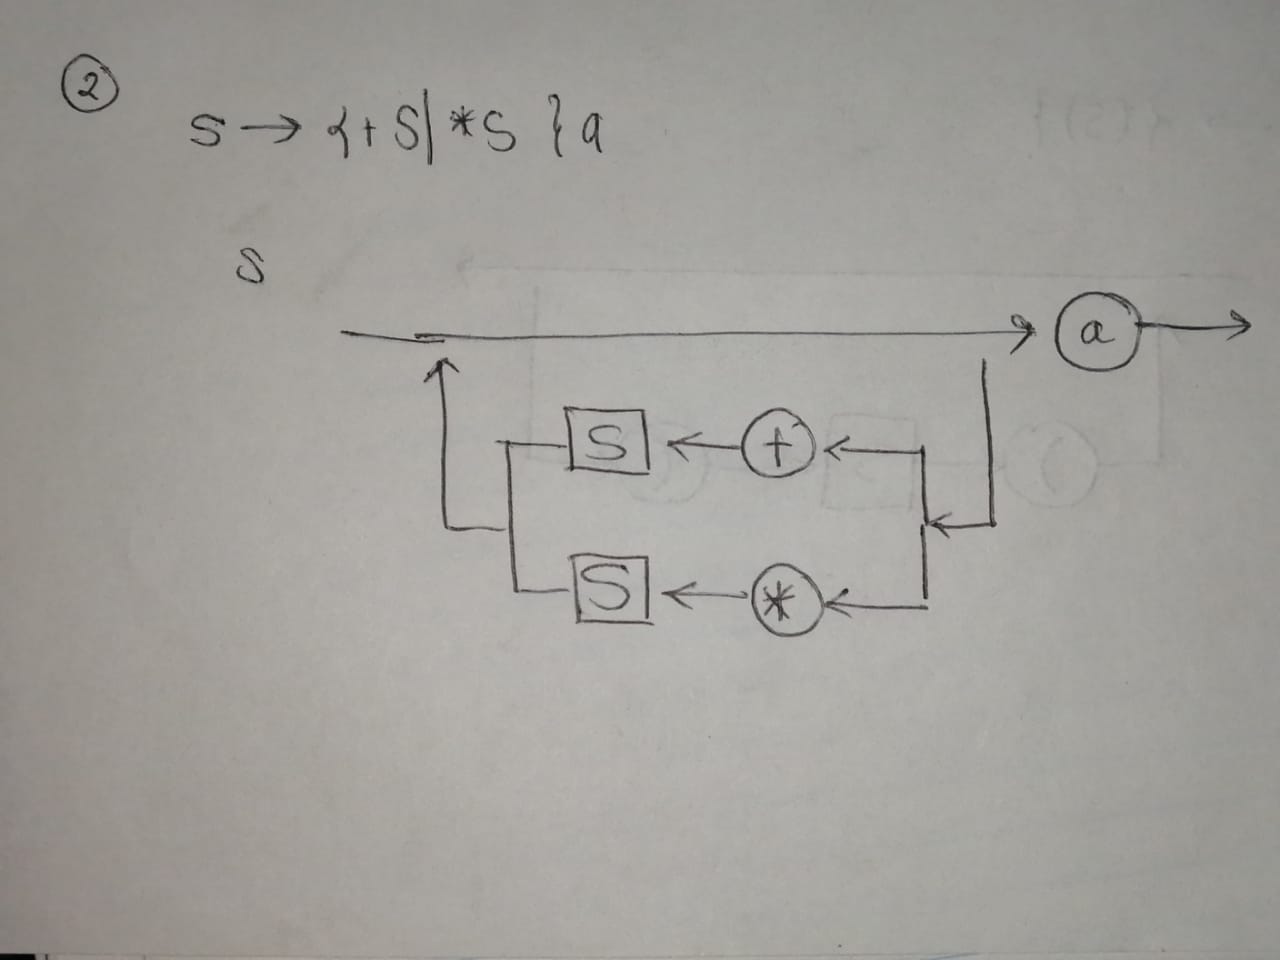 2
S → {+ S | * S } a
S
a
S +
S *